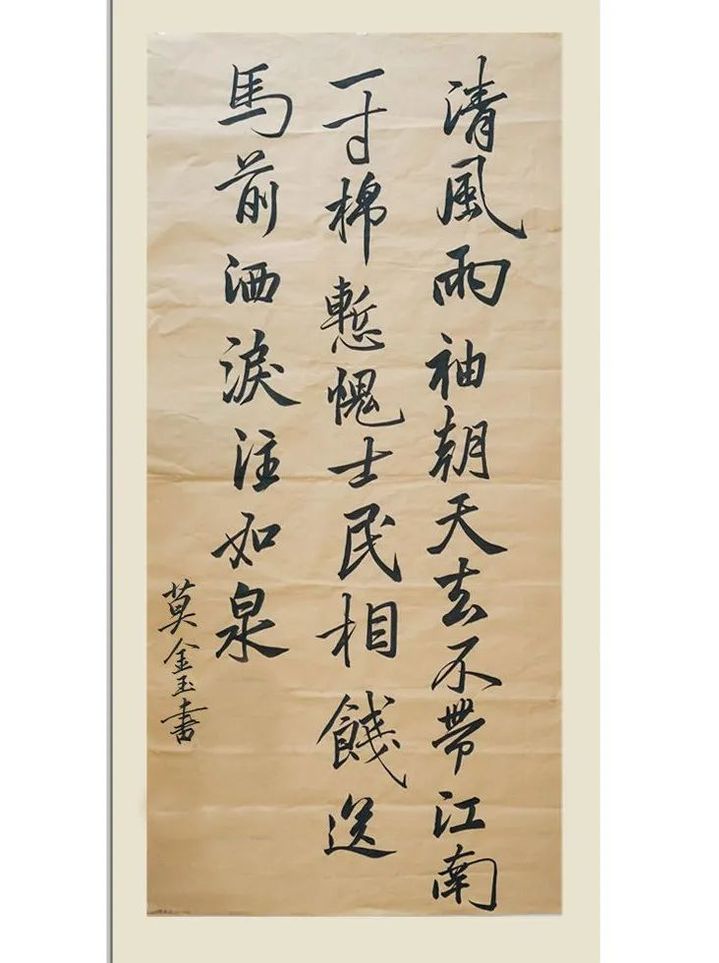 清風兩袖朝天去不帶江南
一寸棉慙愧士民相餞送
馬前洒淚注如泉
莫金玉書